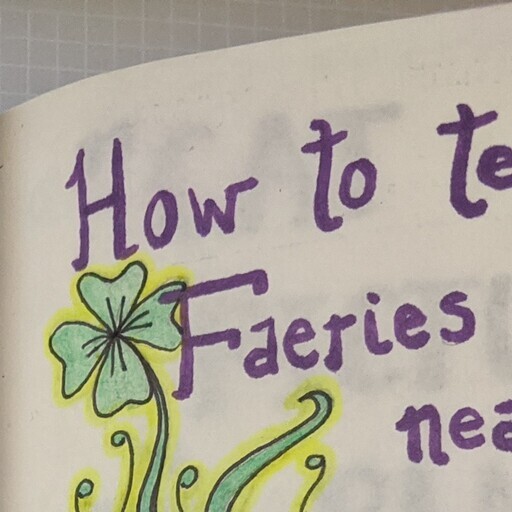 How to te
Faeries
nea